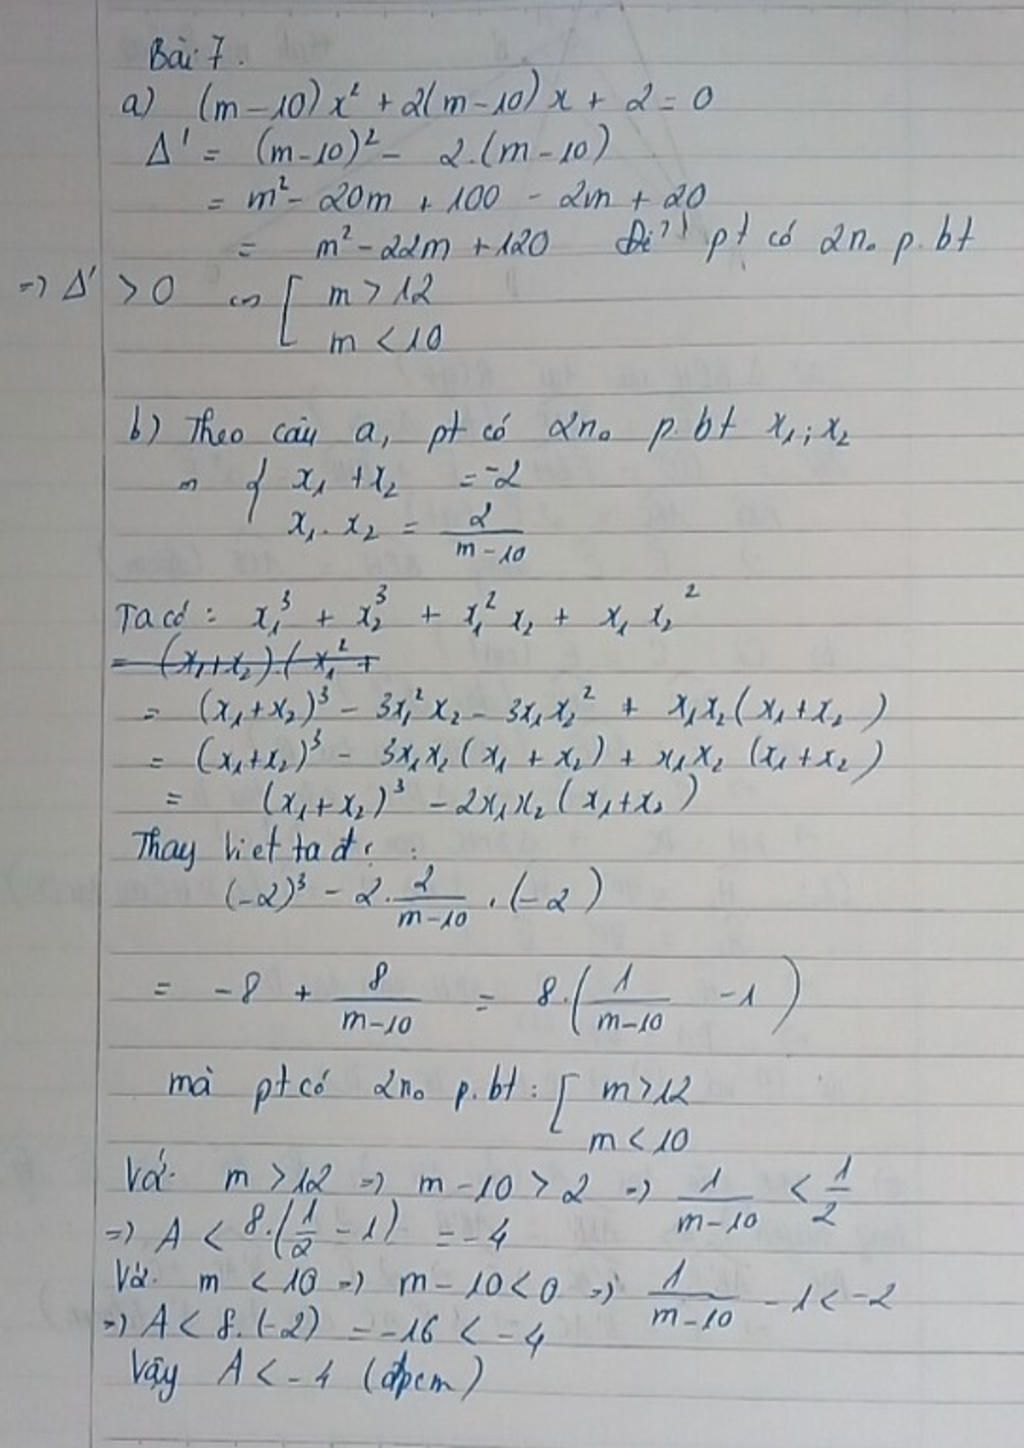 Bài 7.
a) (m-10)x² + 2(m-10)x + 2 = 0
Δ' = (m-10)² - 2.(m-10)
= m² - 20m + 100 - 2m + 20
= m² - 22m + 120 Để pt có 2n₀ p.bt
=> Δ' > 0 <=> [ m > 12
m < 10
b) Theo câu a, pt có 2n₀ p.bt x₁; x₂
{ x₁ + x₂ = -2
x₁ . x₂ = 2/(m-10)
Ta có: x₁³ + x₂³ + x₁²x₂ + x₁x₂²
= (x₁+x₂).(x₁² +
= (x₁+x₂)³ - 3x₁²x₂ - 3x₁x₂² + x₁x₂(x₁+x₂)
= (x₁+x₂)³ - 3x₁x₂(x₁ + x₂) + x₁x₂ (x₁+x₂)
= (x₁+x₂)³ - 2x₁x₂(x₁+x₂)
Thay Viet ta đc:
(-2)³ - 2.2/(m-10) . (-2)
= -8 + 8/(m-10) = 8.(1/(m-10) - 1)
mà pt có 2n₀ p.bt: [ m > 12
m < 10
Với m > 12 => m - 10 > 2 => 1/(m-10) < 1/2
=> A < 8.(1/2 - 1) = -4
Với m < 10 => m - 10 < 0 => 1/(m-10) - 1 < -2
=> A < 8.(-2) = -16 < -4
Vậy A < -4 (đpcm)